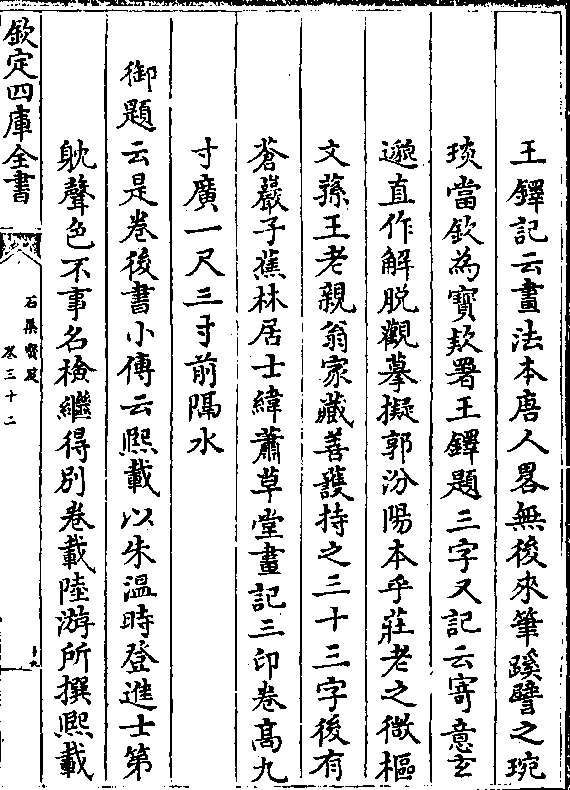 王鐸記云畫法本唐人畧無後來筆蹊譬之琬
琰當欽為寶欵署王鐸題三字又記云寄意玄
邈直作解脫觀摹擬郭汾陽本乎莊老之微樞
文蓀王老親翁家藏善護持之三十三字後有
蒼巖子蕉林居士緯蕭草堂畫記三印卷高九
寸廣一尺三寸前隔水
御題云是卷後書小傳云熈載以朱溫時登進士第
躭聲色不事名檢繼得別卷載陸游所撰熈載
欽定四庫全書
石渠寶笈
卷三十二
十九